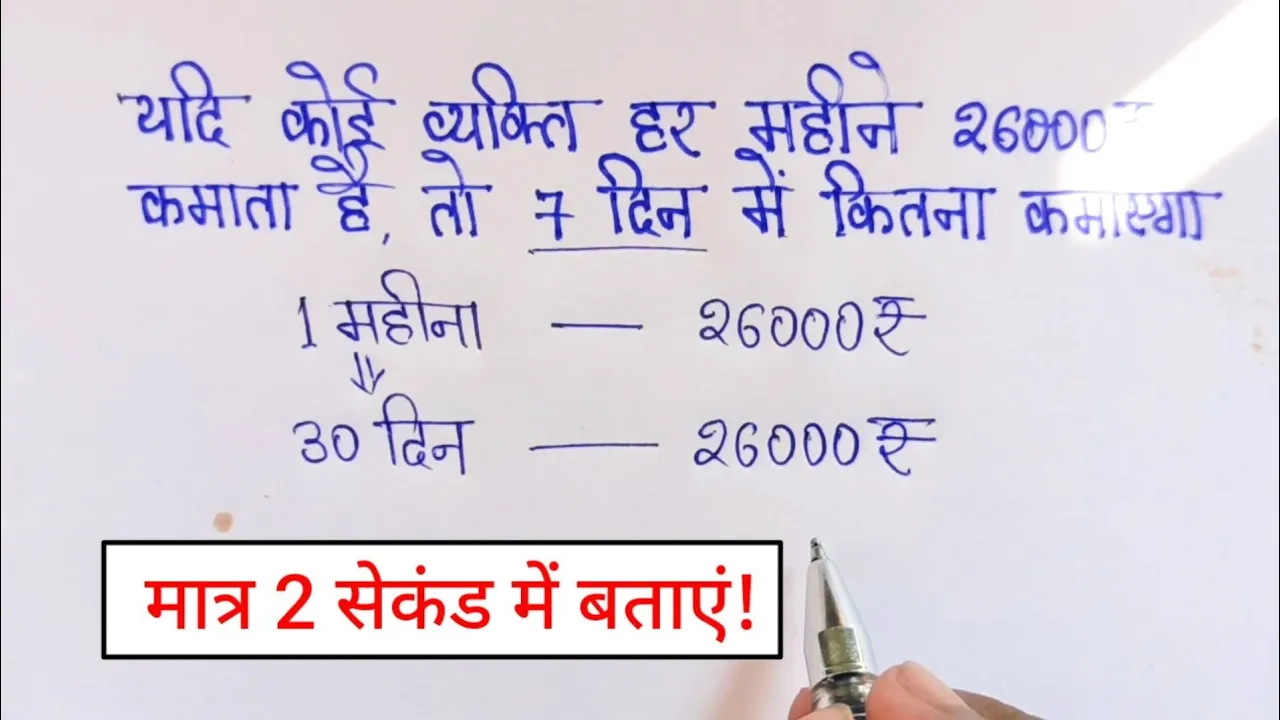 यदि कोई व्यक्ति हर महीने 26000₹
कमाता है, तो 7 दिन में कितना कमाएगा
1 महीना — 26000₹
⇓
30 दिन — 26000₹
मात्र 2 सेकंड में बताएं!